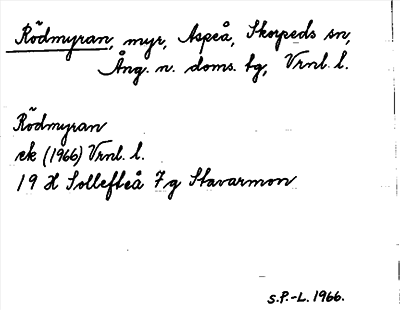 Rödmyran, myr, Aspeå, Skorpeds sn,
Ång. n. doms. tg, Vrnl. l.
Rödmyran
ek (1966) Vrnl. l.
19 H Sollefteå 7g Stavarmon
S.P.-L. 1966.